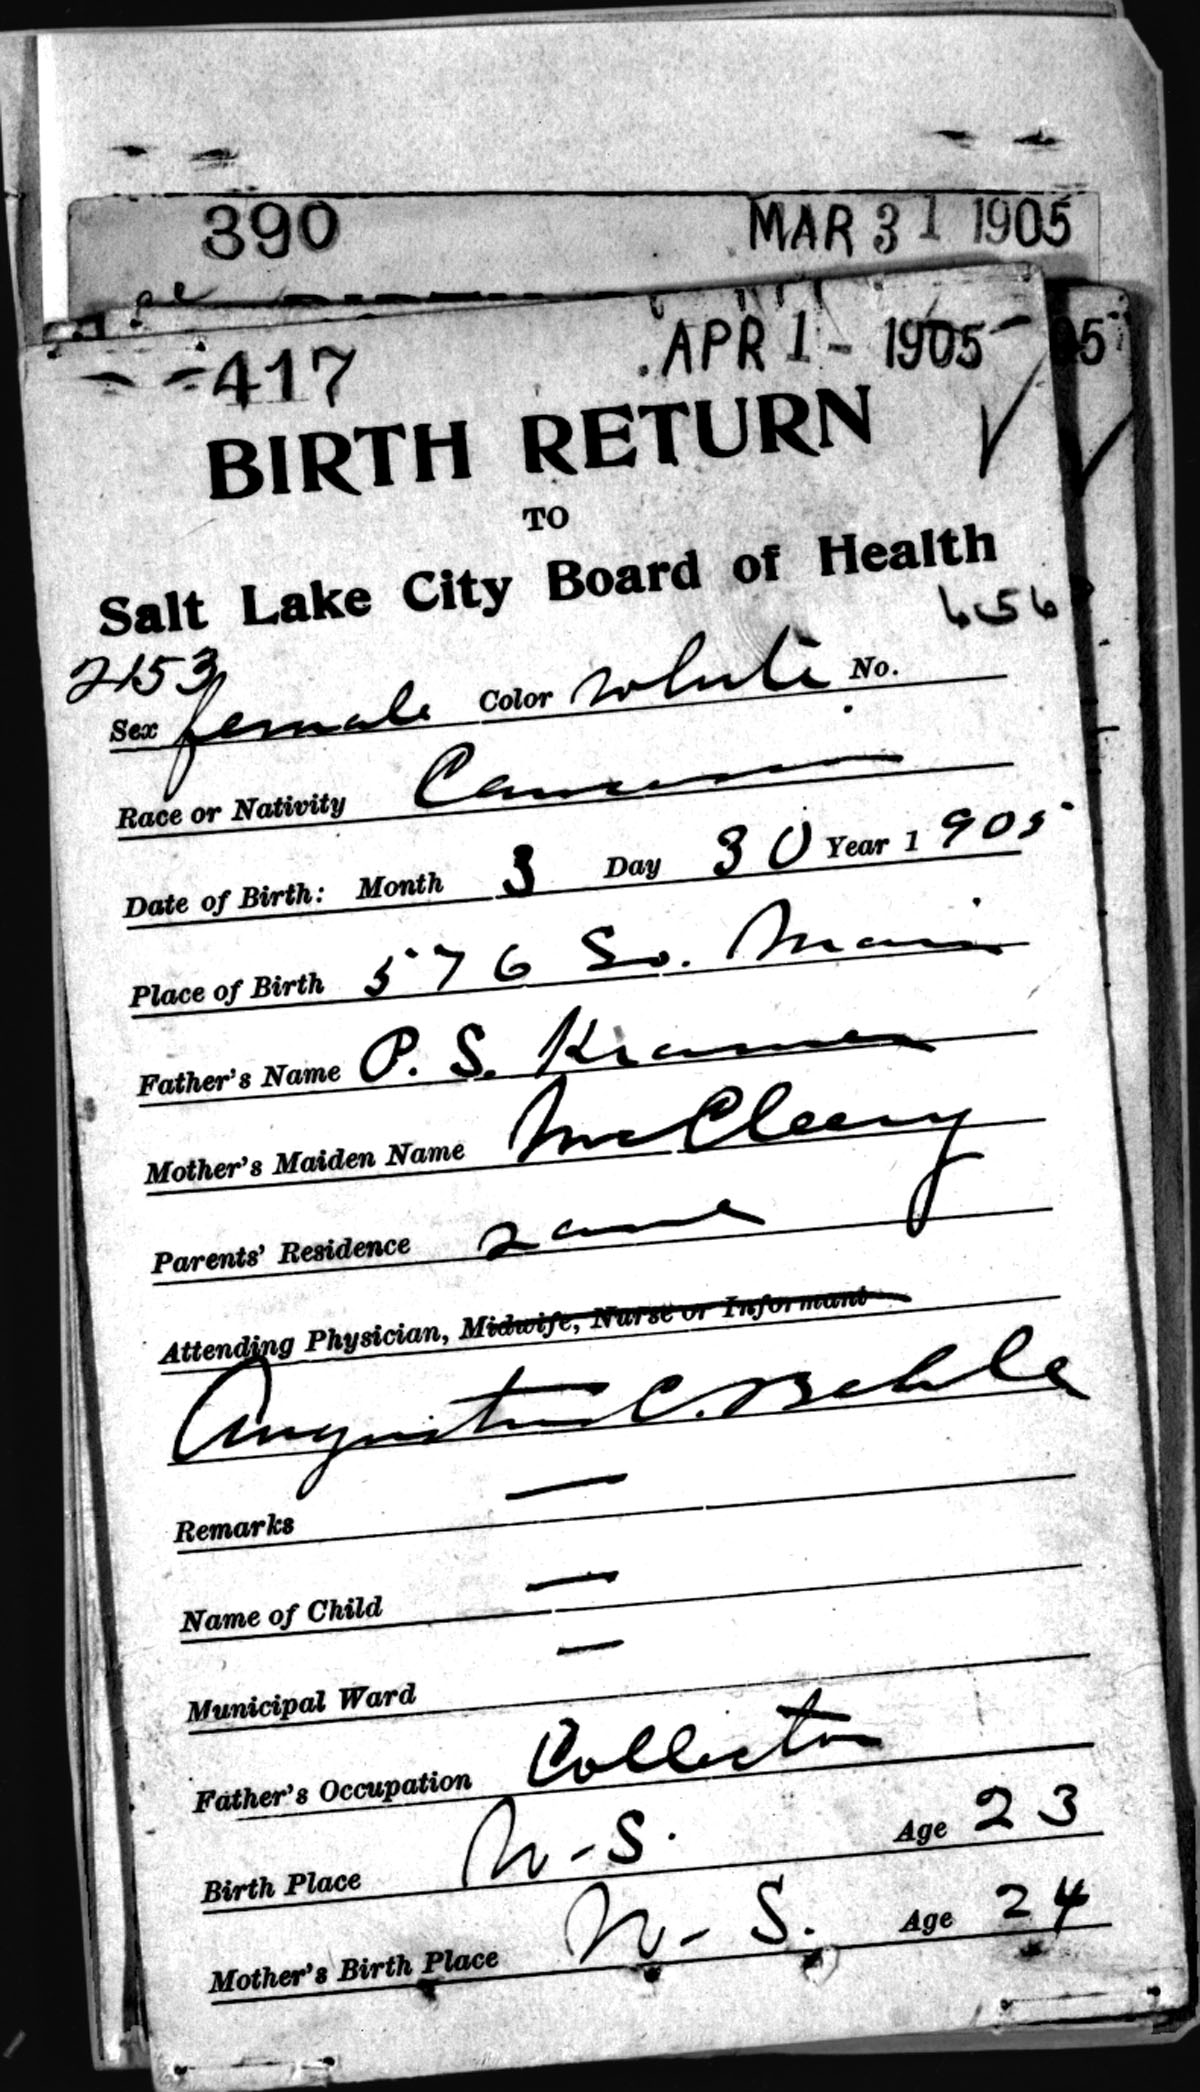 390 MAR 31 1905
417 APR 1 - 1905 05
BIRTH RETURN
TO
Salt Lake City Board of Health
656
2153
Sex female Color white No.
Race or Nativity
Date of Birth: Month 3 Day 30 Year 1905
Place of Birth 576 So. Main
Father's Name P. S. Kramer
Mother's Maiden Name McCleery
Parents' Residence same
Attending Physician, Midwife, Nurse or Informant
Augustus C. Behle
Remarks —
Name of Child —
Municipal Ward —
Father's Occupation Collector
Birth Place U-S. Age 23
Mother's Birth Place U-S. Age 24